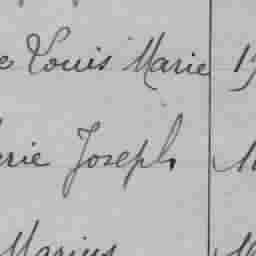 e Louis Marie 19
erie Joseph M
Marius M